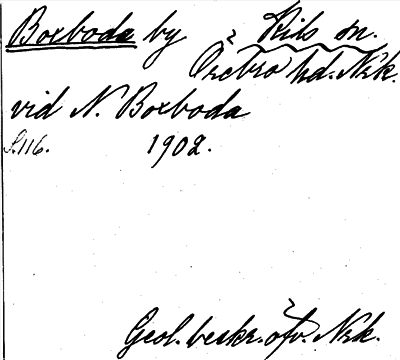 Boxboda by Kils sn.
Örebro hd. Nrk.
vid N. Boxboda
S.116. 1902.
Geol. beskr. öfv. Nrk.